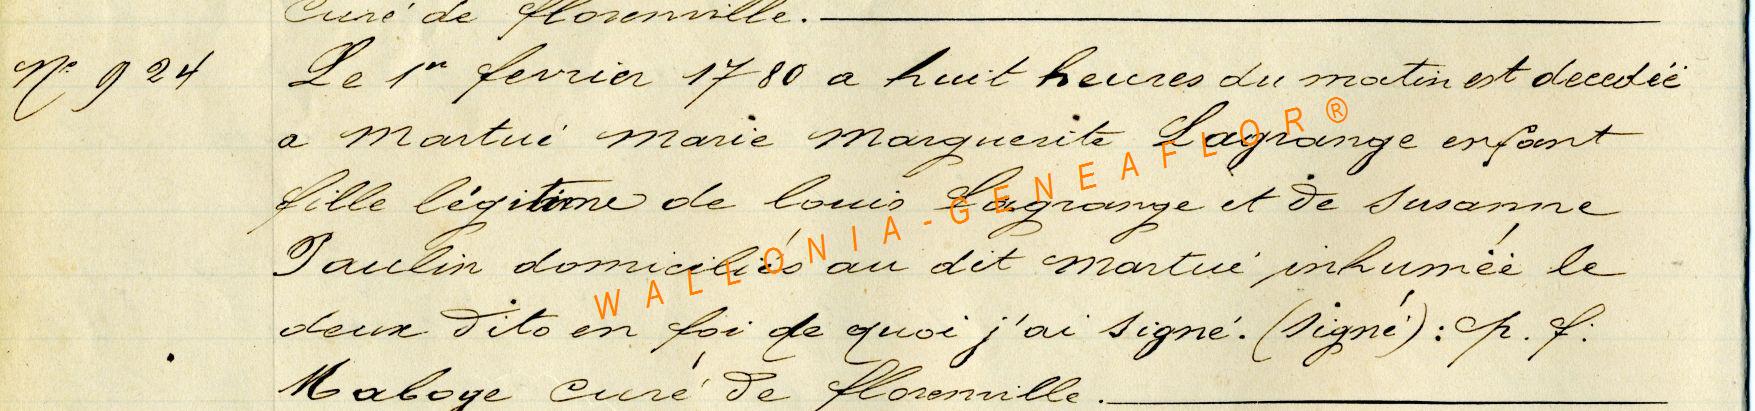 Curé de florenville.
N° 924 Le 1er fevrier 1780 a huit heures du matin est decedéé
a Martué Marie Marguerite Lagrange enfant
fille légitime de louis Lagrange et de Susanne
Paulin domiciliés au dit Martué inhuméé le
deux dito en foi de quoi j'ai signé. (Signé) : p. f.
Maboge curé de florenville.
WALLONIA-GENEAFLOR®